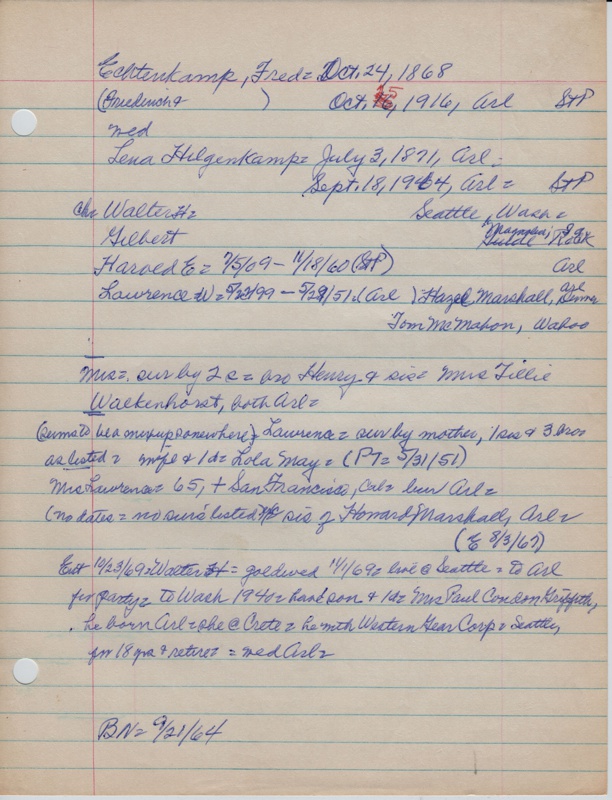 Echtenkamp, Fred = Oct. 24, 1868
(Friedrich &          )          Oct. 15, 1916, Arl     St P
med
Lena Hilgenkamp = July 3, 1871, Arl =
Sept. 18, 1964, Arl =     St P
chr Walter H =          Seattle, Wash =
Gilbert          Magnolia,
Harold E = 7/5/69 - 11/18/60 (St P)          Arl
Lawrence W = 5/23/99 - 5/29/51 (Arl) Hazel Marshall, Arl
Tom McMahon, Wahoo
Mrs = sur by 2 s = bro Henry & sis = Mrs Tillie
Walkenhorst, both Arl =
(seems to be a mixup somewhere) Lawrence = sur by mother, 1 sis & 3 bros
as listed = wife & 1 d = Lola May = (PT = 5/31/51)
Mrs Lawrence = 65, + San Francisco, Cal = bur Arl =
(no dates = no surs listed sis of Howard Marshall, Arl =
(E 8/3/67)
Ent 10/23/69 = Walter H = gold wed 11/1/69 = live @ Seattle = to Arl
for party = to Wash 1940 = have son & 1 d = Mrs Paul Condon Griffith,
he born Arl = she @ Crete = he with Western Gear Corp = Seattle,
for 18 yrs & retire = = med Arl =
BN = 9/21/64